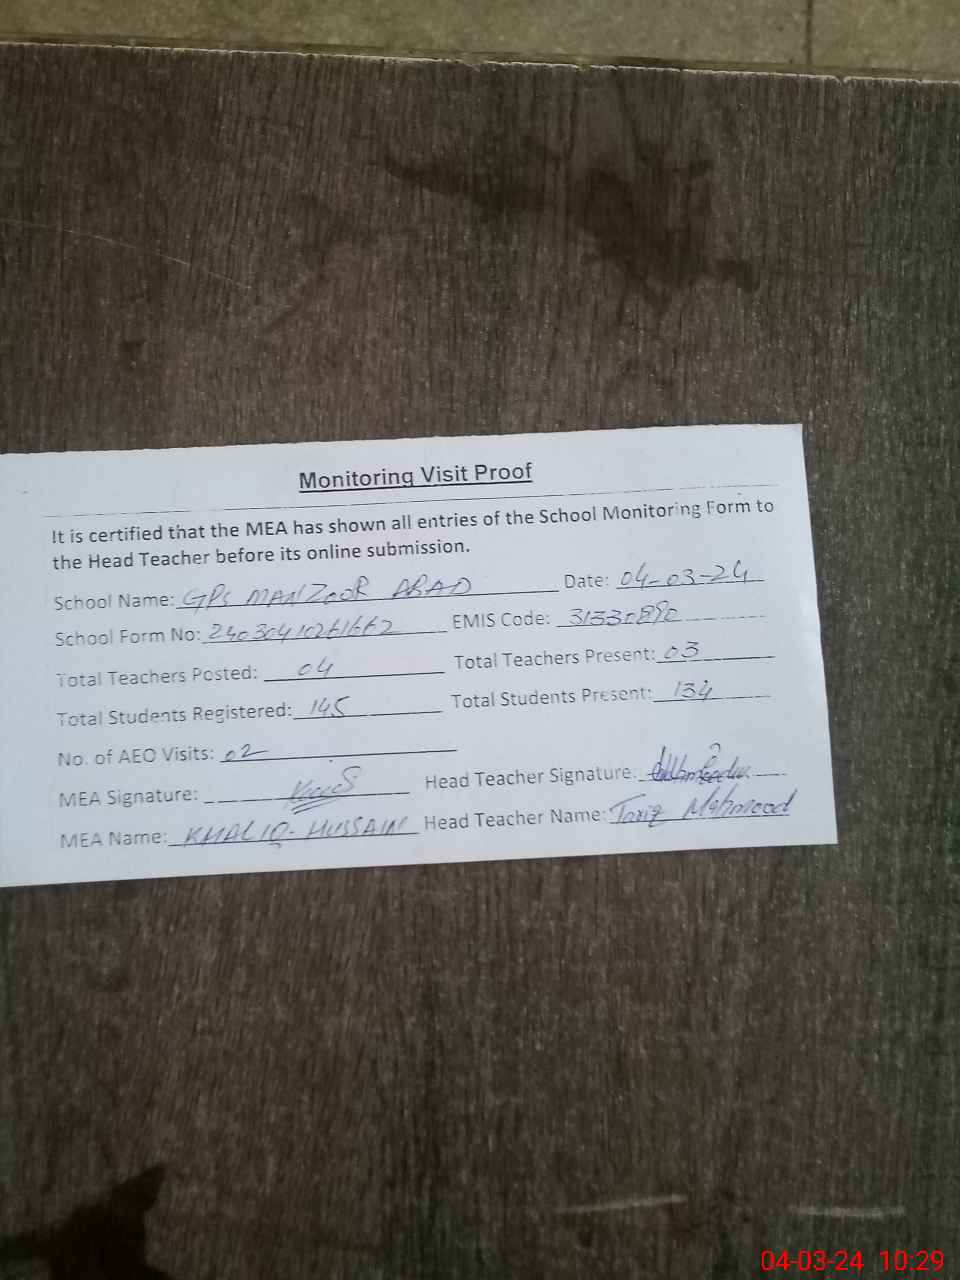 Monitoring Visit Proof
It is certified that the MEA has shown all entries of the School Monitoring Form to
the Head Teacher before its online submission.
School Name: GPS MANZOOR ABAD Date: 04-03-24
School Form No: 24030410261662 EMIS Code: 31330890
Total Teachers Posted: 04 Total Teachers Present: 03
Total Students Registered: 145 Total Students Present: 134
No. of AEO Visits: 02
MEA Signature: Head Teacher Signature:
MEA Name: KHALIQ HUSSAIN Head Teacher Name: Tariq Mahmood
04-03-24 10:29